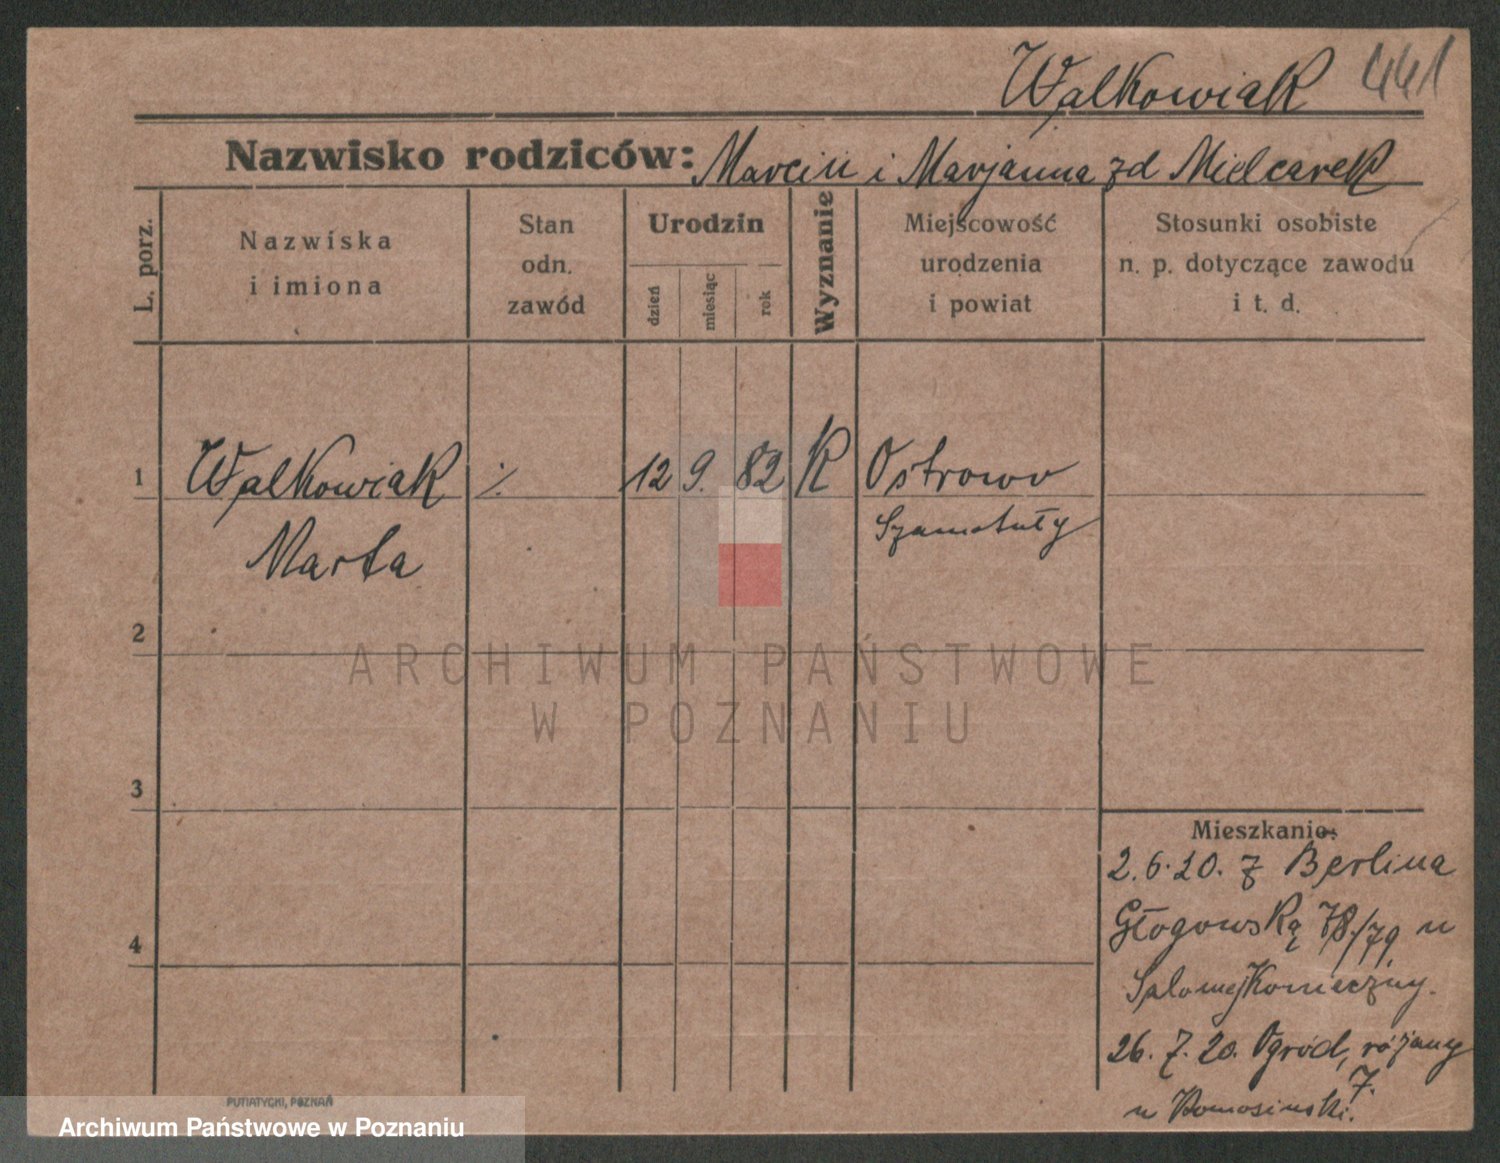 Walkowiak 441
Nazwisko rodziców: Marcin i Marjanna zd Mielcarek
L. porz.
Nazwiska
i imiona
Stan
odn.
zawód
Urodzin
dzień
miesiąc
rok
Wyznanie
Miejscowość
urodzenia
i powiat
Stosunki osobiste
n. p. dotyczące zawodu
i t. d.
1 Walkowiak ./. 12 9. 82 K Ostrowo
Marta Szamotuły
2
ARCHIWUM PAŃSTWOWE
W POZNANIU
3
Mieszkanie:
2.6.20. z Berlina
Głogowską 78./79 u
4
Salomej Konieczny.
26. 7. 20. Ogród, różany
7.
u
PUTIATYCKI, POZNAŃ
Archiwum Państwowe w Poznaniu